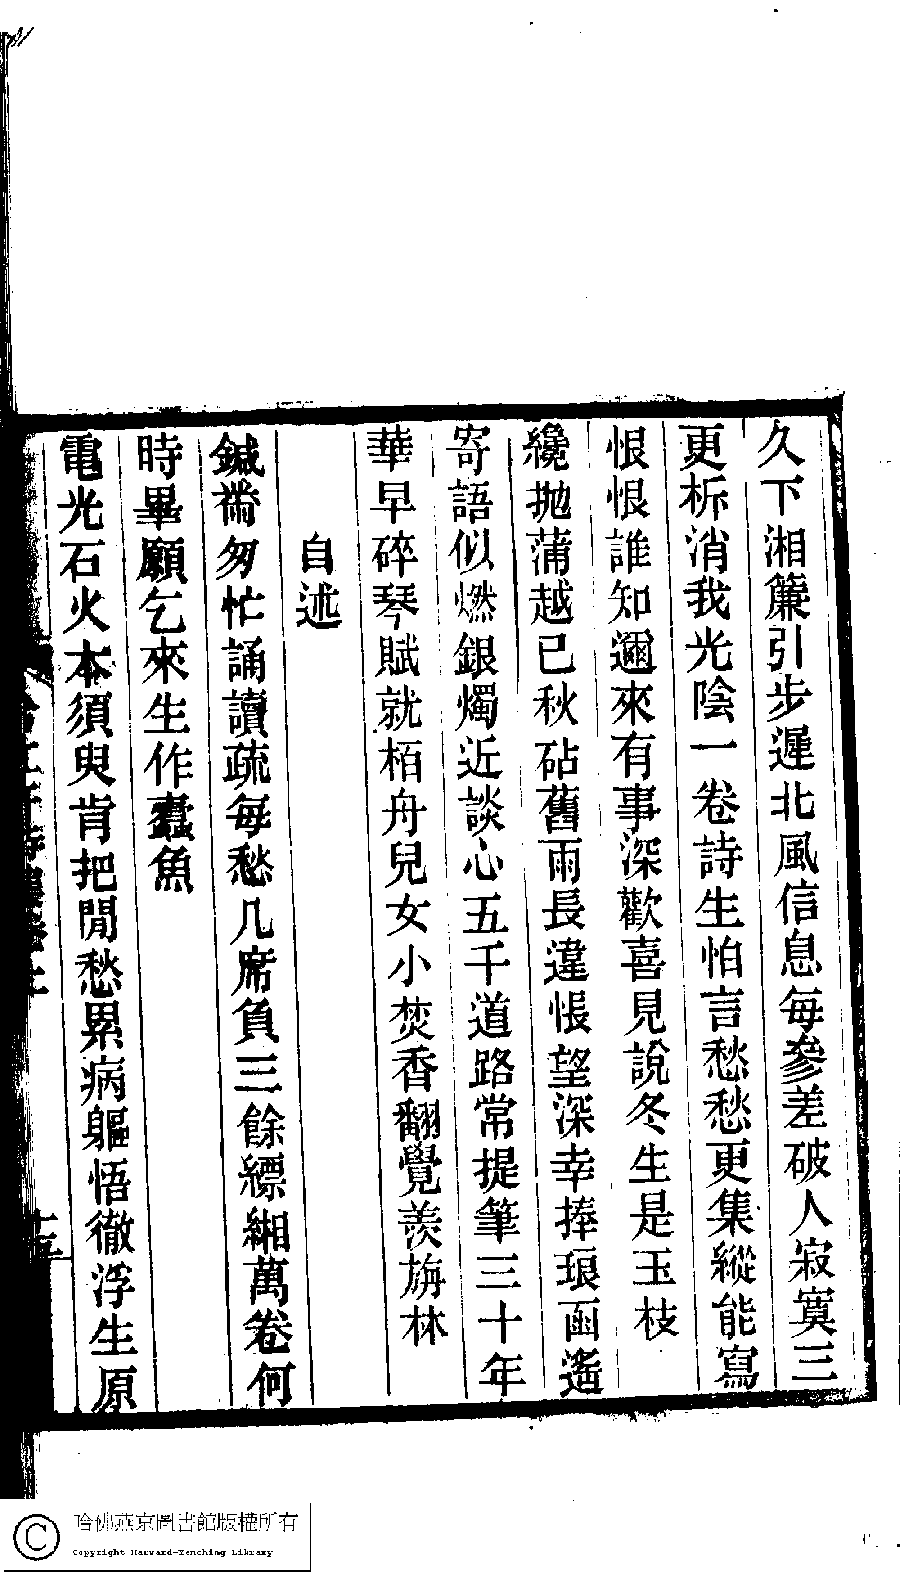 久下湘簾引步遲北風信息每參差破人寂寞三
更柝消我光陰一卷詩生怕言愁愁更集縱能寫
恨恨誰知邇來有事深歡喜見說冬生是玉枝
纔拋蒲越已秋砧舊雨長違悵望深幸捧琅函遙
寄語似燃銀燭近談心五千道路常提筆三十年
華早碎琴賦就栢舟兒女小焚香翻覺羨旃林
自述
鍼黹匆忙誦讀疏每愁几席負三餘縹緗萬卷何
時畢願乞來生作蠹魚
電光石火本須臾肯把閒愁累病軀悟徹浮生原
十五
哈佛燕京圖書館版權所有
Copyright Harvard-Yenching Library